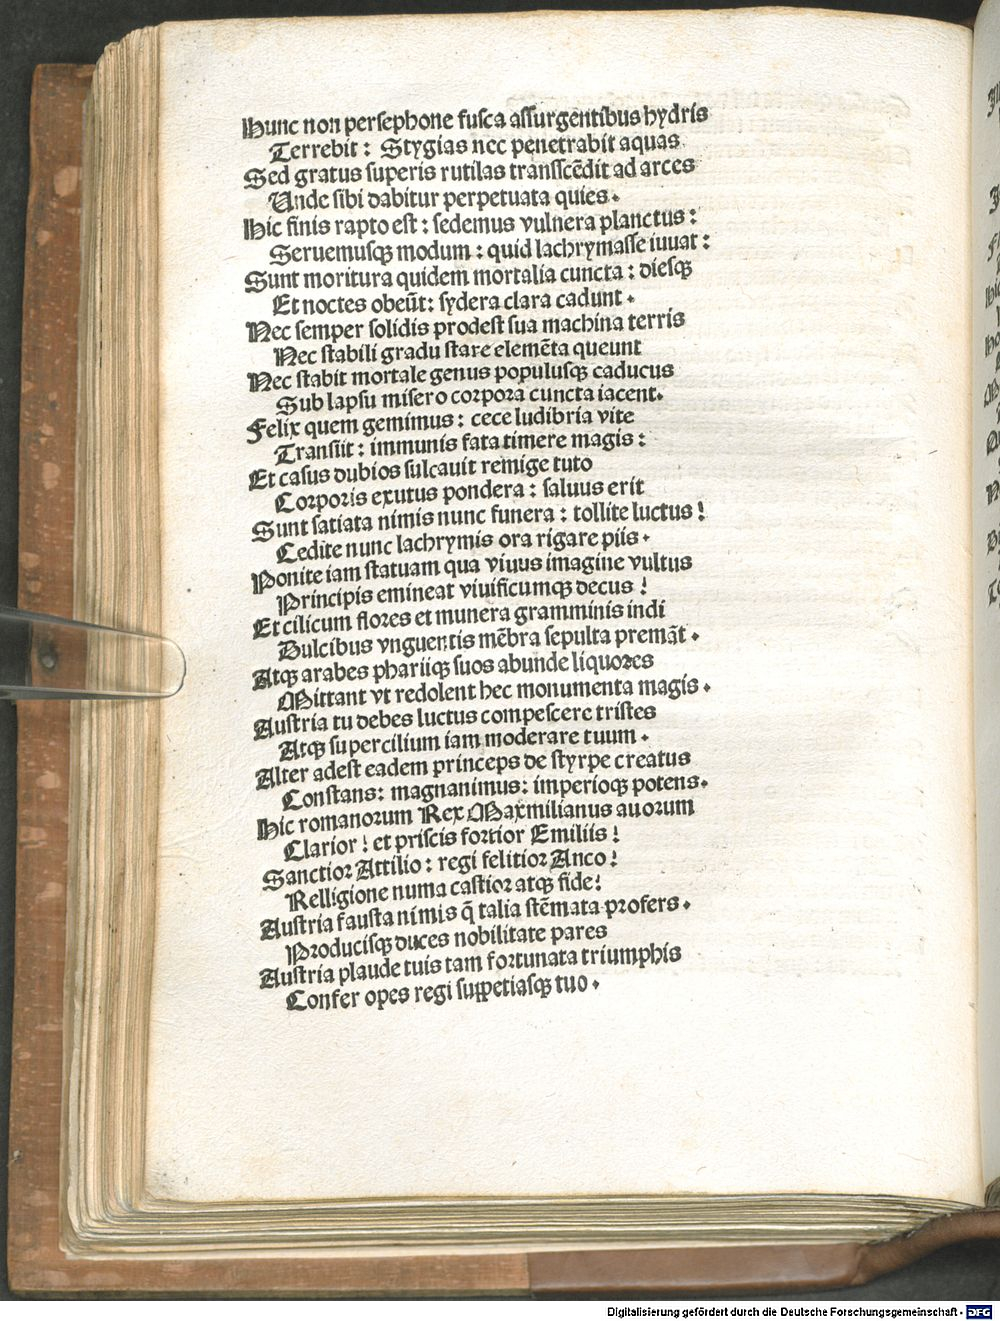 Hunc non persephone fusca assurgentibus hydris
Terrebit : Stygias nec penetrabit aquas
Sed gratus superis rutilas transscēdit ad arces
Unde sibi dabitur perpetuata quies.
Hic finis rapto est : sedemus vulnera planctus :
Seruemusqꝫ modum : quid lachrymasse iuuat :
Sunt moritura quidem mortalia cuncta : diesqꝫ
Et noctes obeūt: sydera clara cadunt.
Nec semper solidis prodest sua machina terris
Nec stabili gradu stare elemēta queunt
Nec stabit mortale genus populusqꝫ caducus
Sub lapsu misero corpora cuncta iacent.
Felix quem gemimus : cece ludibria vite
Transiit : immunis fata timere magis :
Et casus dubios sulcauit remige tuto
Corporis exutus pondera : saluus erit
Sunt satiata nimis nunc funera : tollite luctus !
Cedite nunc lachrymis ora rigare piis.
Ponite iam statuam qua viuus imagine vultus
Principis emineat viuificumqꝫ decus !
Et cilicum flores et munera gramminis indi
Dulcibus vnguentis mēbra sepulta premāt.
Atqꝫ arabes phariiqꝫ suos abunde liquores
Mittant vt redolent hec monumenta magis.
Austria tu debes luctus compescere tristes
Atqꝫ supercilium iam moderare tuum.
Alter adest eadem princeps de styrpe creatus
Constans: magnanimus: imperioqꝫ potens.
Hic romanorum Rex Maxmilianus auorum
Clarior ! et priscis fortior Emiliis !
Sanctior Attilio : regi felitior Anco !
Relligione numa castior atqꝫ fide!
Austria fausta nimis q̄ talia stēmata profers.
Producisqꝫ duces nobilitate pares
Austria plaude tuis tam fortunata triumphis
Confer opes regi suppetiasqꝫ tuo.
Digitalisierung gefördert durch die Deutsche Forschungsgemeinschaft - DFG